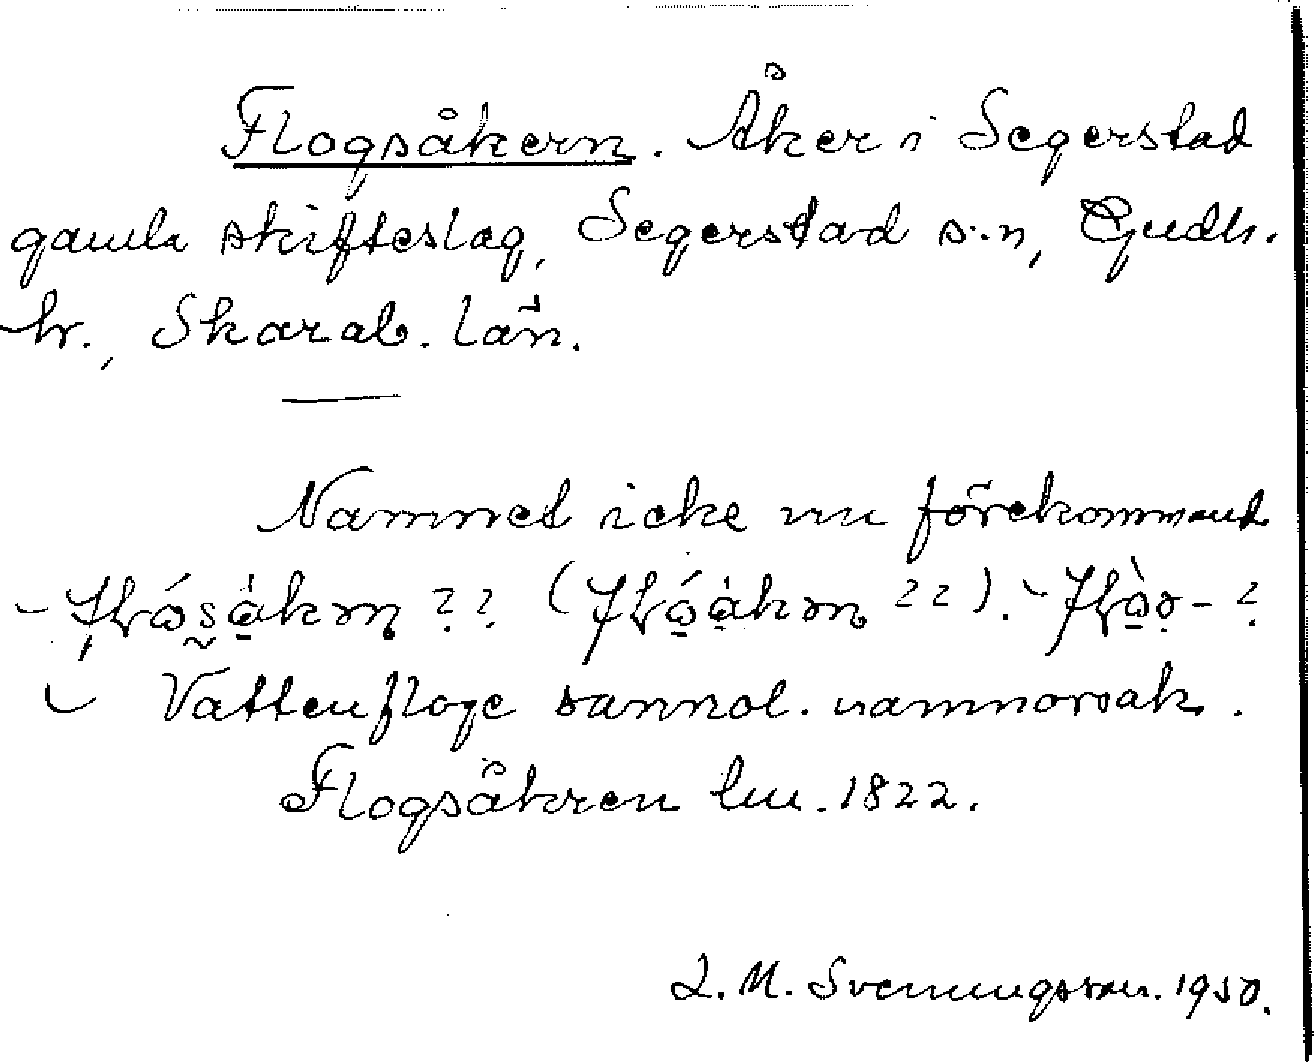 Flogsåkern. Åker i Segerstad
gamla skifteslag, Segerstad s:n, Gudh.
hr., Skarab. län.
Namnet icke nu förekommand
Vattenfloge sannol. namnorsak.
Flogsåkren lm. 1822.
L. M. Svenungsson. 1950.